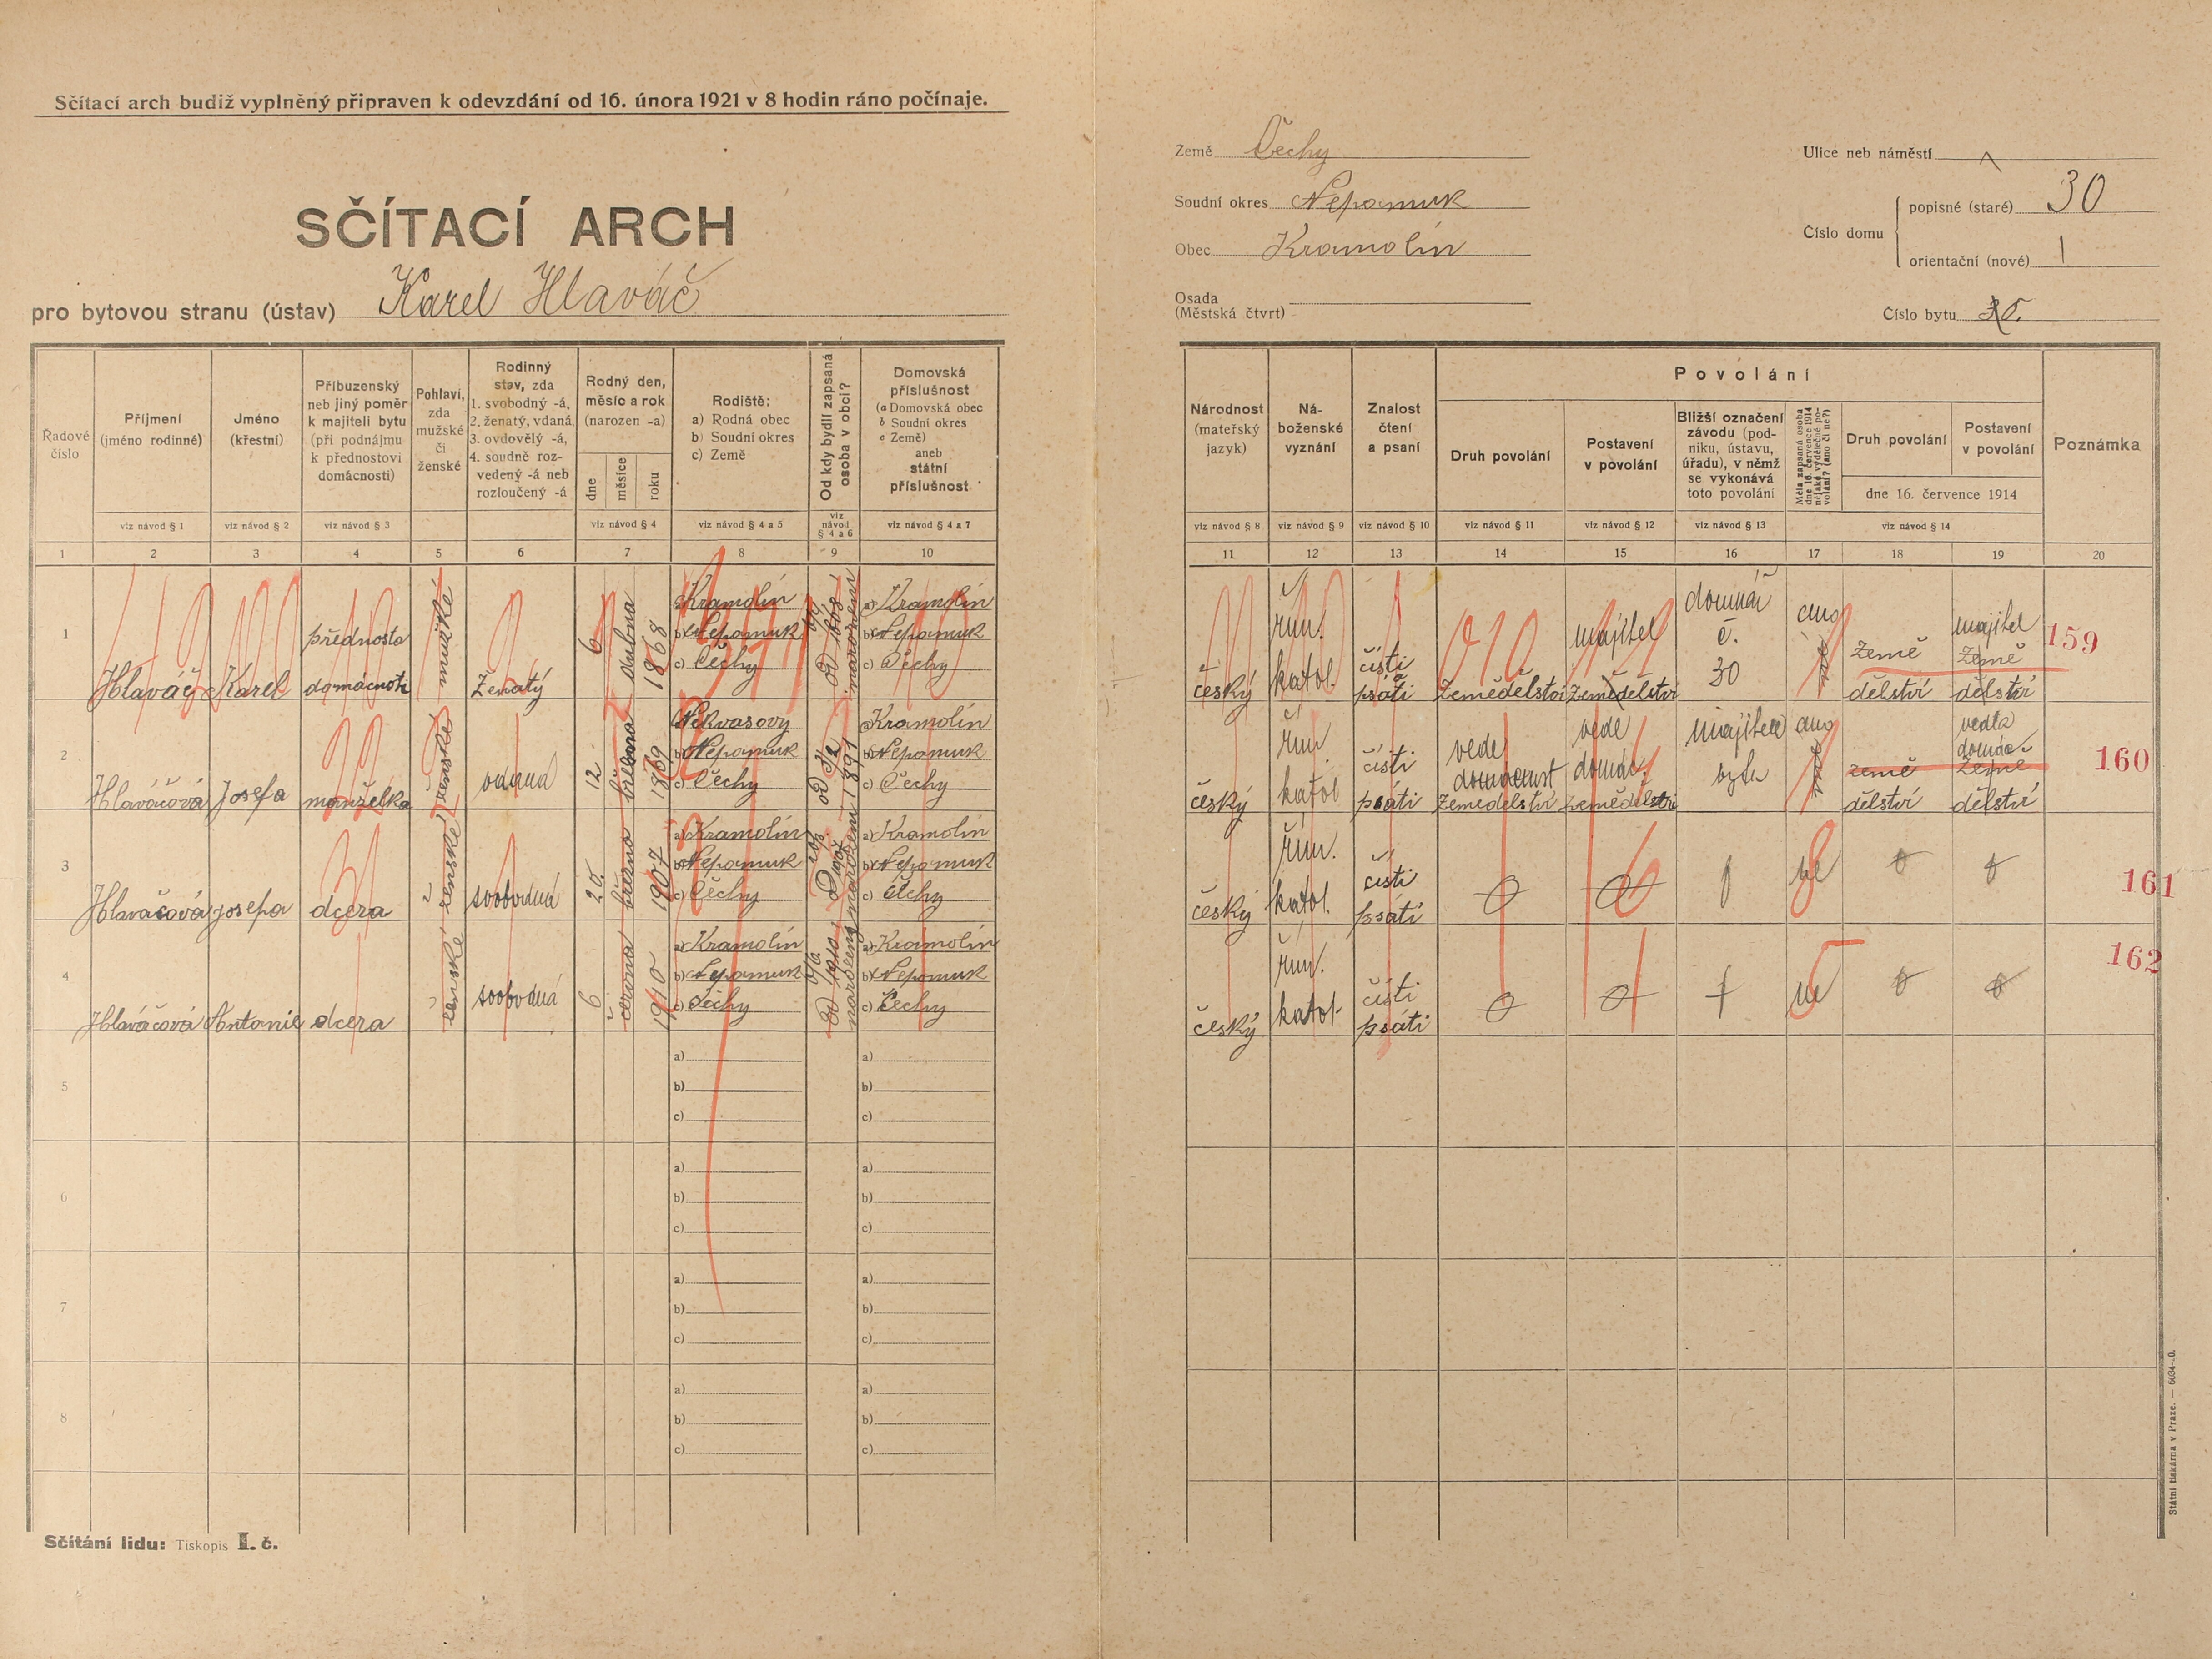 Sčítací arch budiž vyplněný připraven k odevzdání od 16. února 1921 v 8 hodin ráno počínaje.
SČÍTACÍ ARCH
pro bytovou stranu (ústav) Karel Hlaváč
Země Čechy
Soudní okres Nepomuk
Obec Kramolín
Osada
(Městská čtvrt)
Ulice neb náměstí
Číslo domu
popisné (staré) 30
orientační (nové)
Číslo bytu
Řadové číslo
Příjmení (jméno rodinné)
Jméno (křestní)
Příbuzenský neb jiný poměr k majiteli bytu (při podnájmu k přednostovi domácnosti)
Pohlaví, zda mužské či ženské
Rodinný stav, zda 1. svobodný -á, 2. ženatý, vdaná, 3. ovdovělý -á, 4. soudně rozvedený -á neb rozloučený -á
Rodný den, měsíc a rok (narozen -a)
dne
měsíce
roku
Rodiště:
a) Rodná obec
b) Soudní okres
c) Země
Od kdy bydlí zapsaná osoba v obci?
Domovská příslušnost
(a Domovská obec
b Soudní okres
c Země)
aneb
státní příslušnost
viz návod § 1
viz návod § 2
viz návod § 3
viz návod § 4
viz návod § 4 a 5
viz návod § 4 a 6
viz návod § 4 a 7
1 2 3 4 5 6 7 8 9 10
1 Hlaváč Karel přednosta domácnoti mužské Ženatý 6 dubna 1868
a) Kramolín
b) Nepomuk
c) Čechy
od 1868 narození
a) Kramolín
b) Nepomuk
c) Čechy
2 Hlaváčová Josefa manželka ženské vdaná 12 března 1869
a) Nekvasovy
b) Nepomuk
c) Čechy
1891
a) Kramolín
b) Nepomuk
c) Čechy
3 Hlaváčová Josefa dcera ženské svobodná 20. března 1907
a) Kramolín
b) Nepomuk
c) Čechy
narození
a) Kramolín
b) Nepomuk
c) Čechy
4 Hlaváčová Antonie dcera ženské svobodná 6 června 1910
a) Kramolín
b) Nepomuk
c) Čechy
od 1910 narození
a) Kramolín
b) Nepomuk
c) Čechy
5
a)
b)
c)
a)
b)
c)
6
a)
b)
c)
a)
b)
c)
7
a)
b)
c)
a)
b)
c)
8
a)
b)
c)
a)
b)
c)
Sčítání lidu: Tiskopis I. č.
Národnost (mateřský jazyk)
Náboženské vyznání
Znalost čtení a psaní
Povolání
Druh povolání
Postavení v povolání
Bližší označení závodu (podniku, ústavu, úřadu), v němž se vykonává toto povolání
Měla zapsaná osoba dne 16. července 1914 nějaké výdělečné povolání? (ano či ne?)
Druh povolání
Postavení v povolání
dne 16. července 1914
Poznámka
viz návod § 8
viz návod § 9
viz návod § 10
viz návod § 11
viz návod § 12
viz návod § 13
viz návod § 14
11 12 13 14 15 16 17 18 19 20
český řím. katol. čísti psáti zemědělství majitel zemědělství domkář č. 30 ano země dělství majitel země dělství 159
český řím katol čísti psáti vede domácnost zemědělství vede domác. zemědělství majitele bytu ano země dělství vedla domác- země dělství 160
český řím. katol. čísti psáti 0 0 ne 0 0 161
český řím. katol. čísti psáti 0 0 ne 0 0 162
Státní tiskárna v Praze.